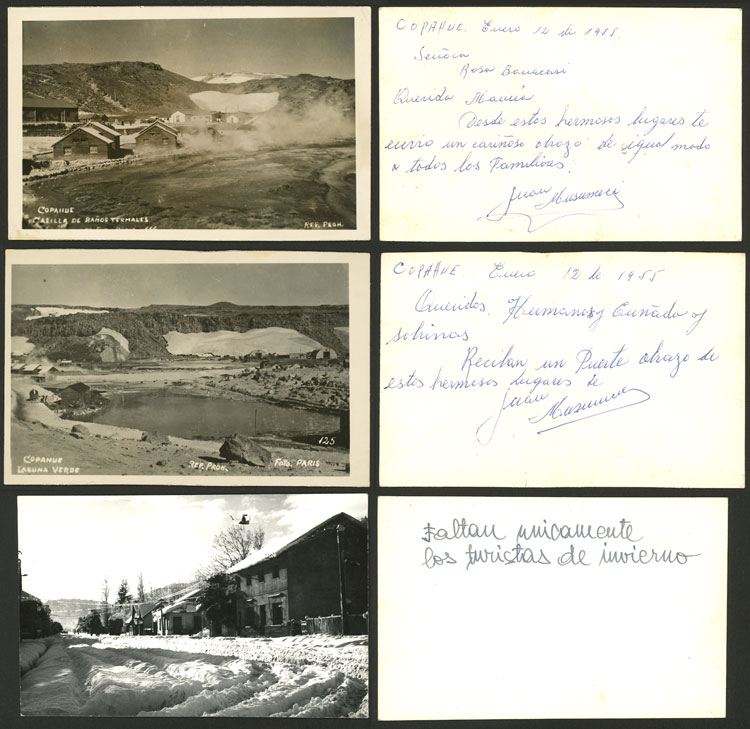 COPAHUE
CASILLA DE BAÑOS TERMALES
REP. PROH.
COPAHUE. Enero 12 de 1955.
Señora
Rosa
Querida María
Desde estos hermosos lugares te
envio un cariñoso abrazo de igual modo
a todos los Familiares.
Juan Musumeci
COPAHUE
LAGUNA VERDE
REP. PROH.
FOTO. PARIS
125
COPAHUE. Enero 12 de 1955
Queridos. Hermanos y Cuñado y
sobrinas
Reciban un Fuerte abrazo de
estos hermosos lugares de
Juan Musumeci
Faltan unicamente
los turistas de invierno